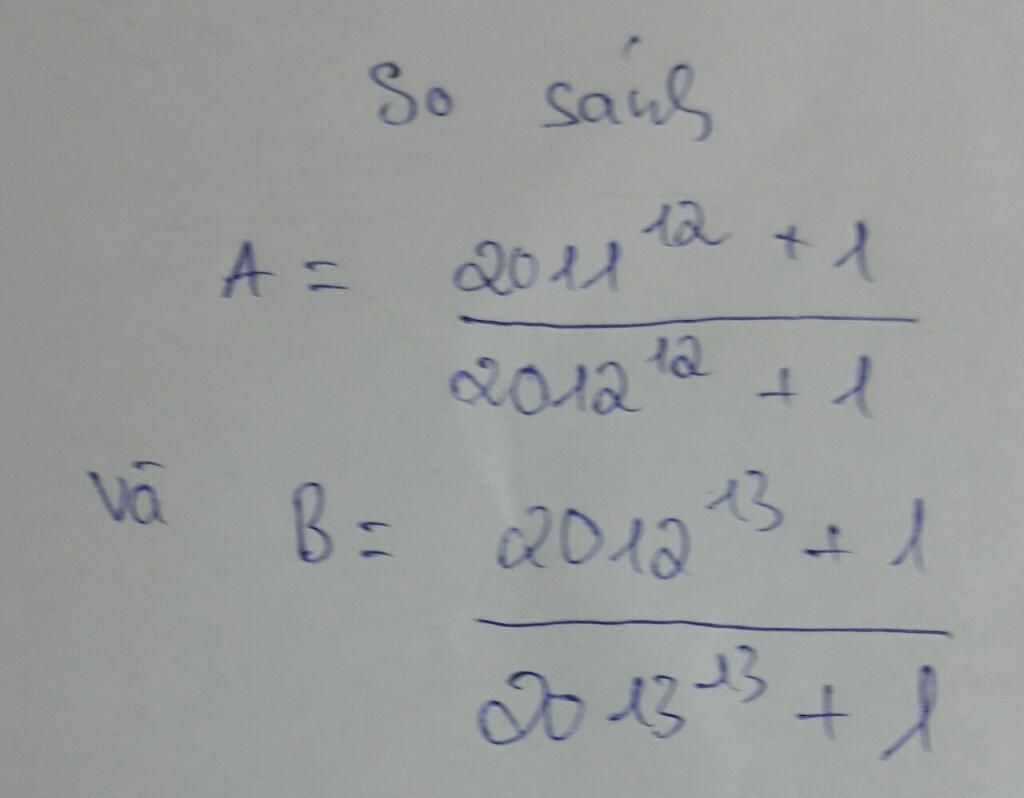 So sánh
A = 2011^12 + 1
2012^12 + 1
và B = 2012^13 + 1
2013^13 + 1